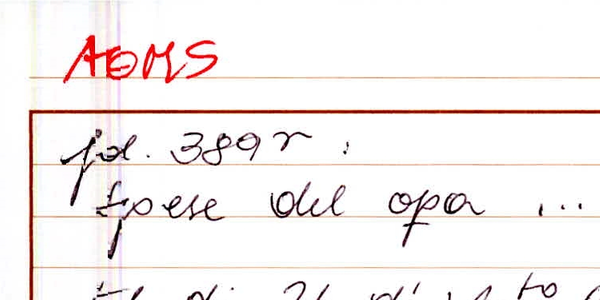 AOMS
fol. 389 r :
spese del opa ...